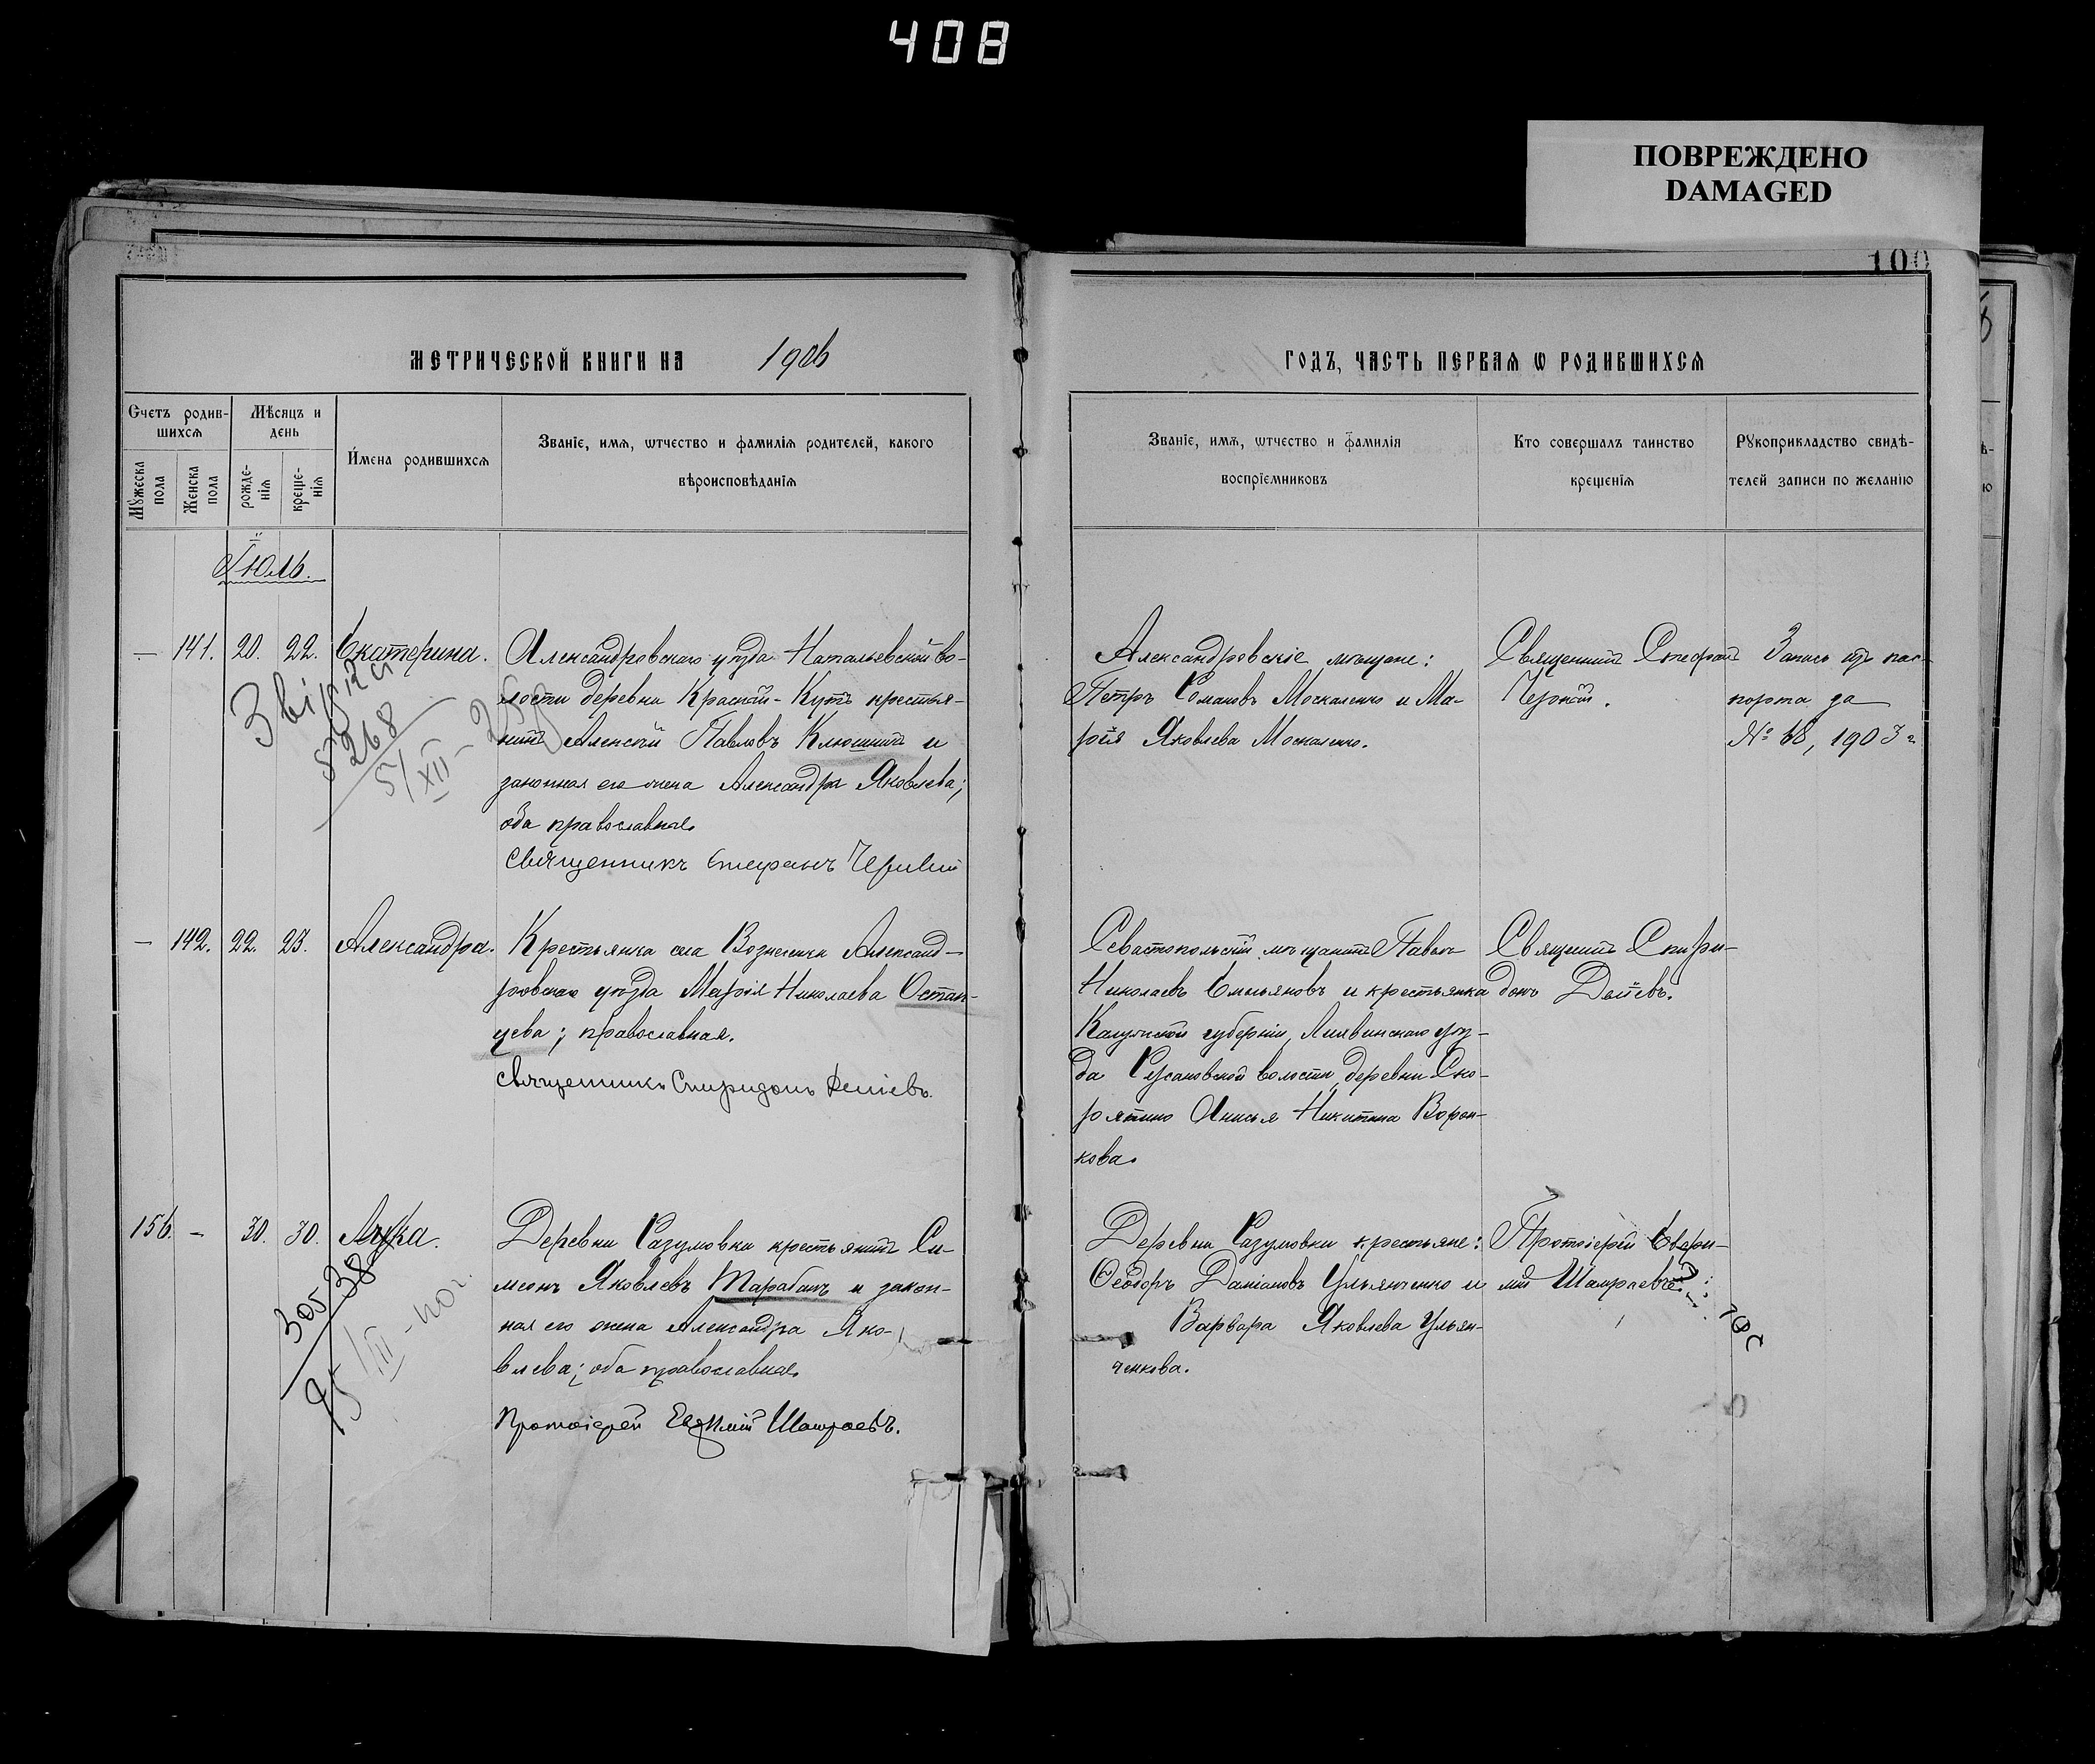 408
ПОВРЕЖДЕНО
DAMAGED
100
МЕТРИЧЕСКОЙ КНИГИ НА 1906
ГОДЪ, ЧАСТЬ ПЕРВАЯ Ѡ РОДИВШИХСЯ
Счетъ родив-
шихся
Мѣсяцъ и
день
Мужеска
пола
Женска
пола
рожде-
нія
креще-
нія
Имена родившихся
Званіе, имя, ѡтчество и фамилія родителей, какого
вѣроисповѣданія
Званіе, имя, ѡтчество и фамилія
воспріемниковъ
Кто совершалъ таинство
крещенія
Рукоприкладство свидѣ-
телей записи по желанію
Іюль.
— 141. 20. 22. Екатерина.
Александровскаго уѣзда Натальевской во-
лости деревни Красный-Кутъ крестья-
нинъ Алексѣй Павловъ Клюшний и
законная его жена Александра Яковлева;
оба православные
Священникъ Стефанъ
Александровскіе мѣщане:
Петръ Романовъ Москаленко и Ма-
рія Яковлева Москаленко.
Священникъ Стефанъ
Запись изъ пас-
порта за
№ 68, 1903 г.
5268
5/XII
— 142. 22. 23. Александра.
Крестьянка села Вознесенки Александ-
ровскаго уѣзда Марія Николаева Остап-
цева; православная.
Священникъ Спиридонъ
Севастопольскій мѣщанинъ Павелъ
Николаевъ Емельяновъ и крестьянка
Калужской губерніи, Лихвинскаго уѣз-
да волости деревни Ско-
рятино Анисья Никитина Ворон-
кова.
Священникъ Спири-
донъ
156. — 30. 30. Лука.
Деревни Разумовки крестьянинъ Си-
меонъ Яковлевъ Тарабанъ и закон-
ная его жена Александра Яко-
влева; оба православные
Протоіерей Евѳимій Шамраевъ.
Деревни Разумовки крестьяне:
Ѳеодоръ Даміановъ Ульянченко и
Варвара Яковлева Ульян-
ченкова.
Протоіерей Евѳи-
мій Шамраевъ
305 38
95